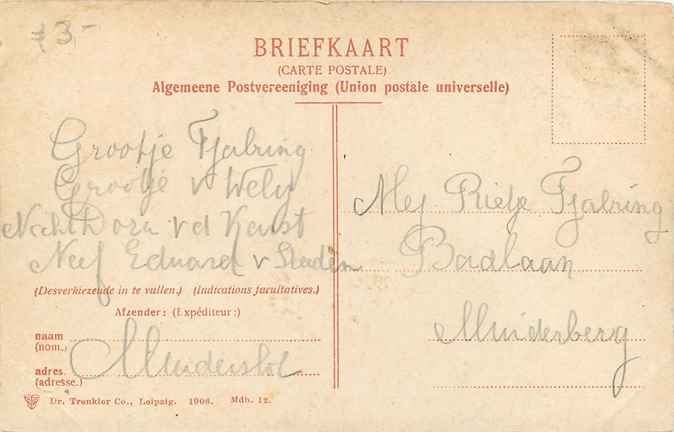 f 3-
BRIEFKAART
(CARTE POSTALE)
Algemeene Postvereeniging (Union postale universelle)
Grootje Tjalring
Grootje v Wely
Nicht Dora v d Kerst
Neef Eduard v Staden
Mej Rietje Tjalring
Badlaan
Muiderberg
(Desverkiezende in te vullen.) (Indications facultatives.)
Afzender: (Expéditeur:)
naam
(nom.)
Muiderslot
adres.
(adresse.)
Dr. Trenkler Co., Leipzig. 1906. Mdb. 12.